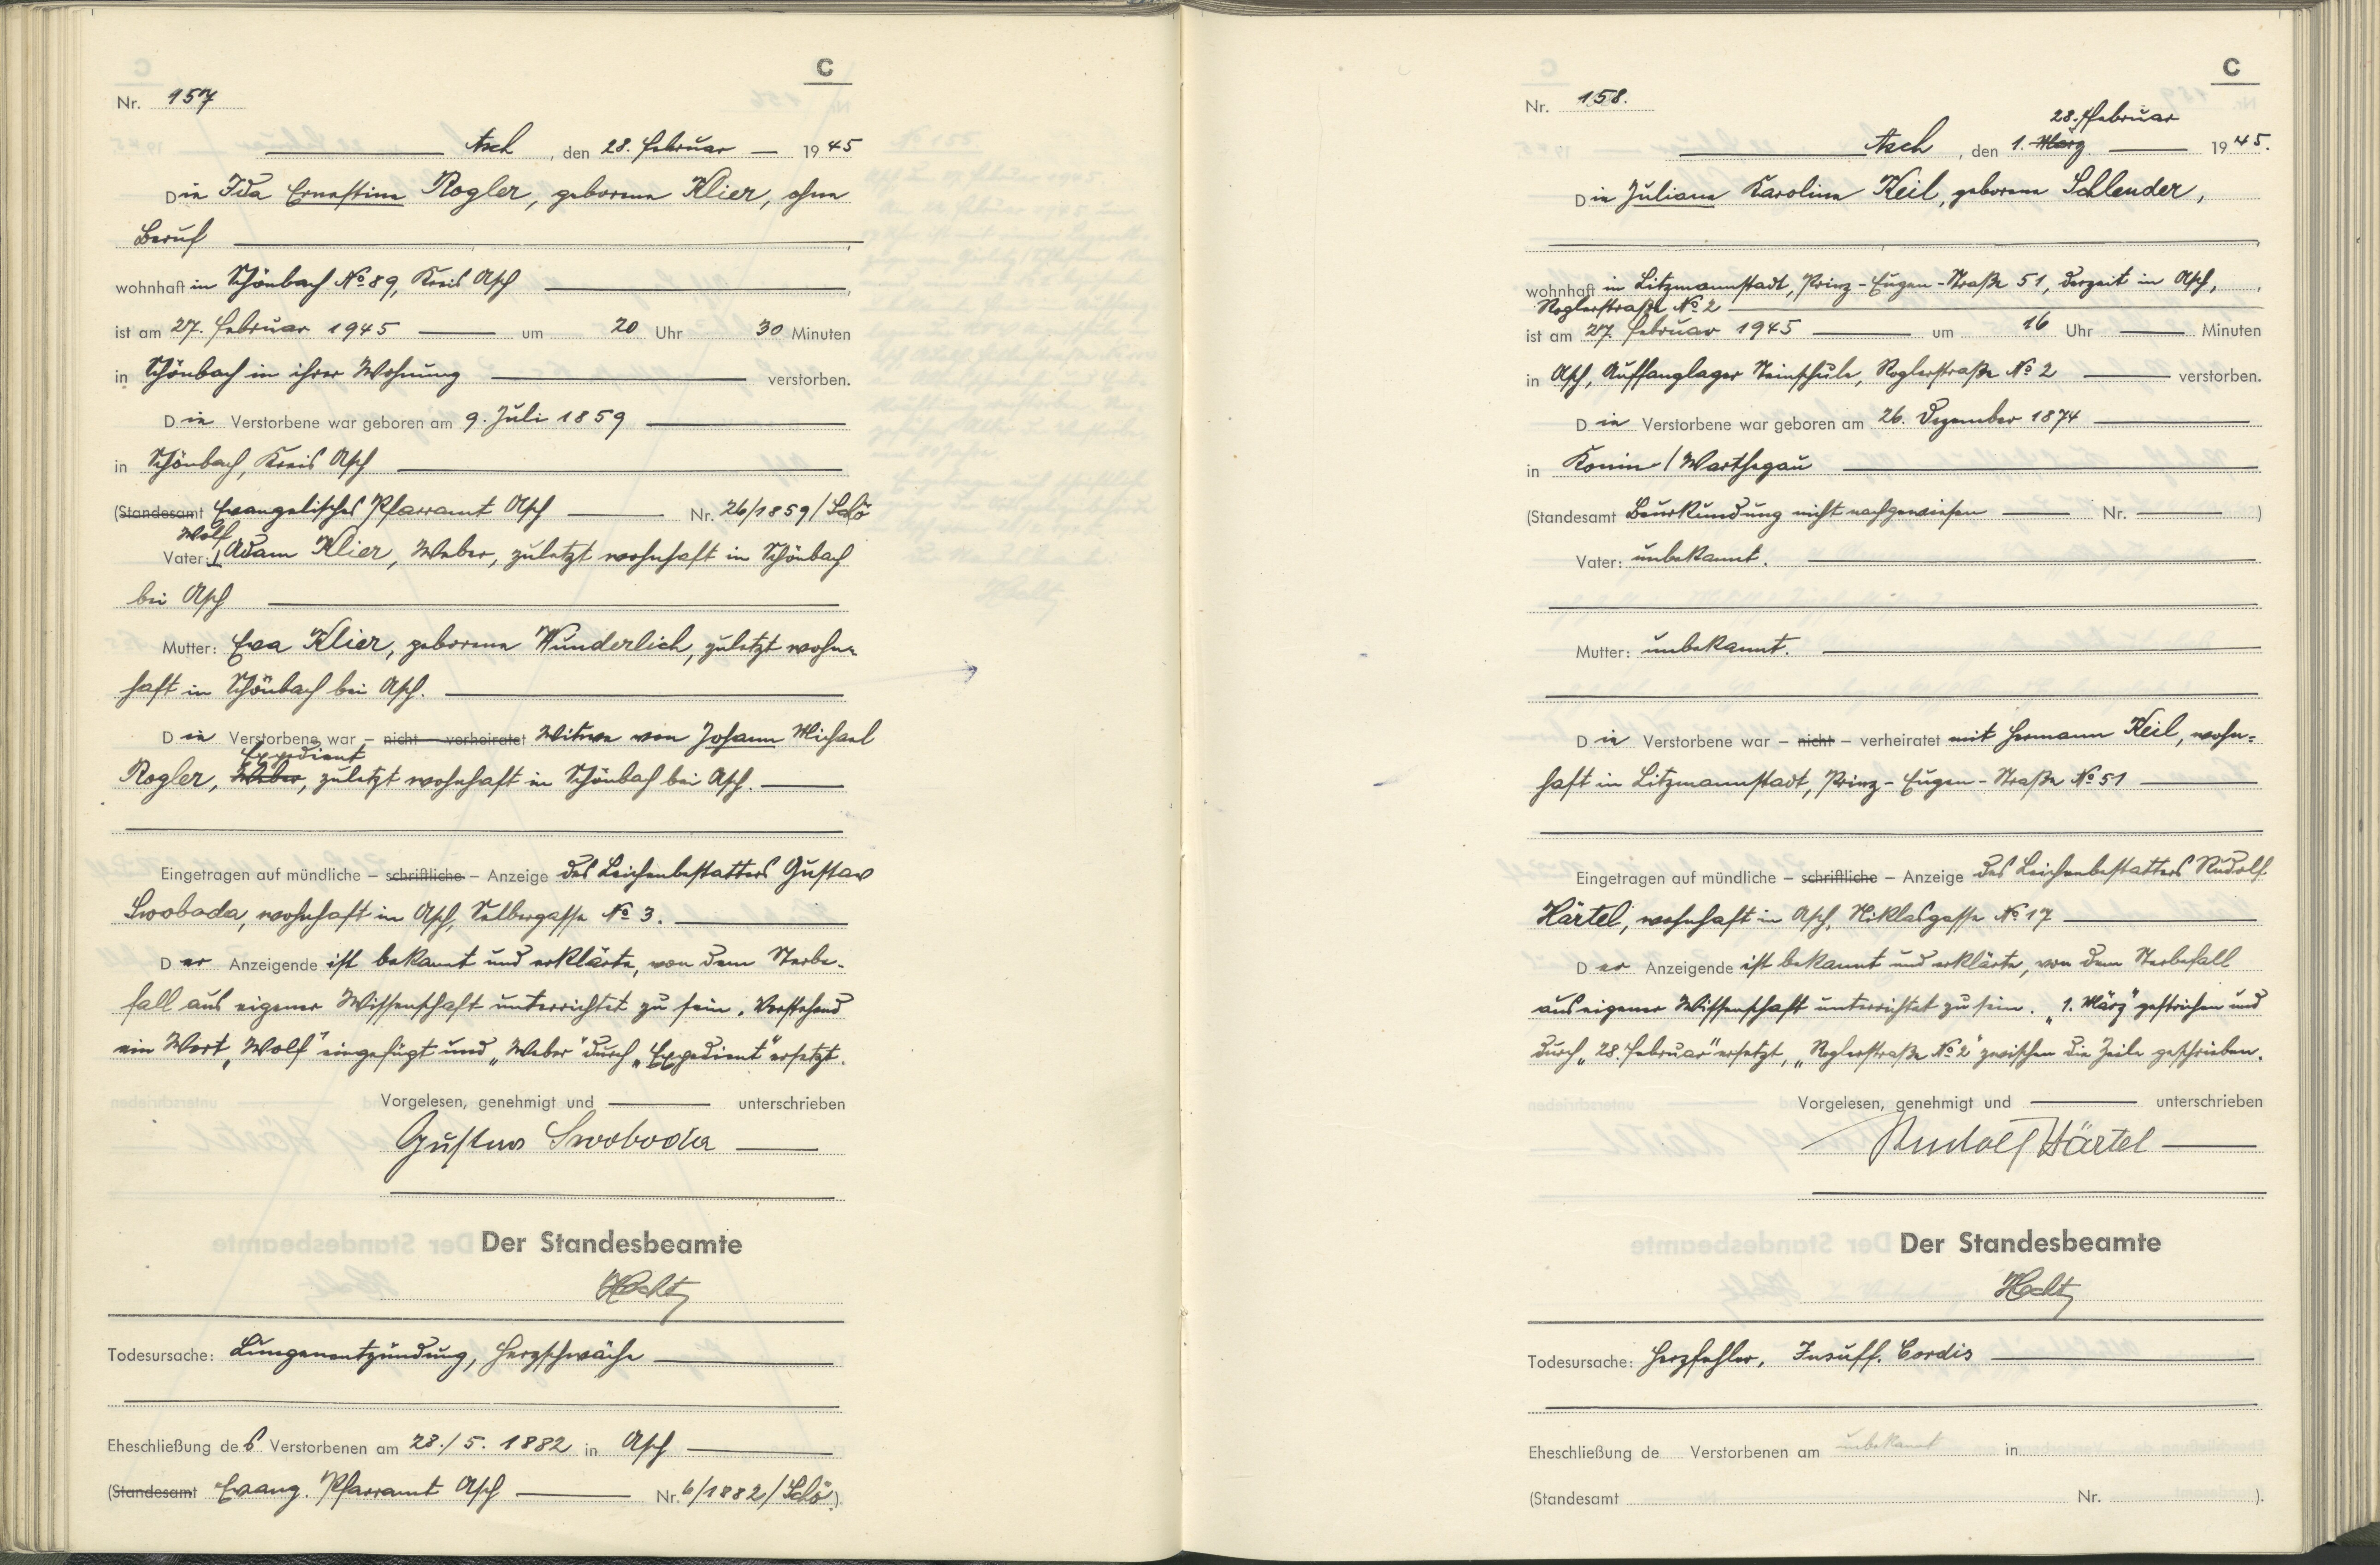 C
Nr. 157
Asch, den 28. Februar 1945
Die Ida Ernestine Rogler, geborene Klier, ohne
Beruf
wohnhaft in Schönbach No 89, Kreis Asch
ist am 27. Februar 1945 um 20 Uhr 30 Minuten
in Schönbach in ihrer Wohnung verstorben.
Die Verstorbene war geboren am 9. Juli 1859
in Schönbach, Kreis Asch
(Standesamt Evangelisches Pfarramt Asch Nr. 26/1859/Schö
Wolf
Vater: Adam Klier, Weber, zuletzt wohnhaft in Schönbach
bei Asch
Mutter: Eva Klier, geborene Wunderlich, zuletzt wohn-
haft in Schönbach bei Asch.
Die Verstorbene war – nicht – verheiratet Witwe von Johann Michael
Expedient
Rogler, Weber, zuletzt wohnhaft in Schönbach bei Asch.
Eingetragen auf mündliche – schriftliche – Anzeige des Leichenbestatters Gustav
Swoboda, wohnhaft in Asch, Selbergasse No 3.
Der Anzeigende ist bekannt und erklärte, von dem Sterbe-
fall aus eigener Wissenschaft unterrichtet zu sein. Vorstehend
ein Wort „Wolf" eingefügt und „Weber" durch „Expedient" ersetzt.
Vorgelesen, genehmigt und unterschrieben
Gustav Swoboda
Der Standesbeamte
Todesursache: Lungenentzündung, Herzschwäche
Eheschließung des Verstorbenen am 28./5. 1882 in Asch
(Standesamt Evang. Pfarramt Asch Nr. 6/1882/Schö.)
C
Nr. 158.
28. Februar
Asch, den 1. März 1945.
Die Juliane Karoline Keil, geborene Schlender,
wohnhaft in Litzmannstadt, Prinz-Eugen-Straße 51, derzeit in Asch,
Roglerstraße No 2
ist am 27. Februar 1945 um 16 Uhr Minuten
in Asch, Auffanglager Steinschule, Roglerstraße No 2 verstorben.
Die Verstorbene war geboren am 26. Dezember 1874
in Konin / Warthegau
(Standesamt Beurkundung nicht nachgewiesen Nr. )
Vater: unbekannt.
Mutter: unbekannt.
Die Verstorbene war – nicht – verheiratet mit Hermann Keil, wohn-
haft in Litzmannstadt, Prinz-Eugen-Straße No 51
Eingetragen auf mündliche – schriftliche – Anzeige des Leichenbestatters Rudolf
Härtel, wohnhaft in Asch, Niklasgasse No 17
Der Anzeigende ist bekannt und erklärte, von dem Sterbefall
aus eigener Wissenschaft unterrichtet zu sein. „1. März" gestrichen und
durch „28. Februar" ersetzt, „Roglerstraße No 2" zwischen die Zeile geschrieben.
Vorgelesen, genehmigt und unterschrieben
Rudolf Härtel
Der Standesbeamte
Todesursache: Herzfehler, Insuff. Cordis
Eheschließung de Verstorbenen am unbekannt in
(Standesamt Nr. ).